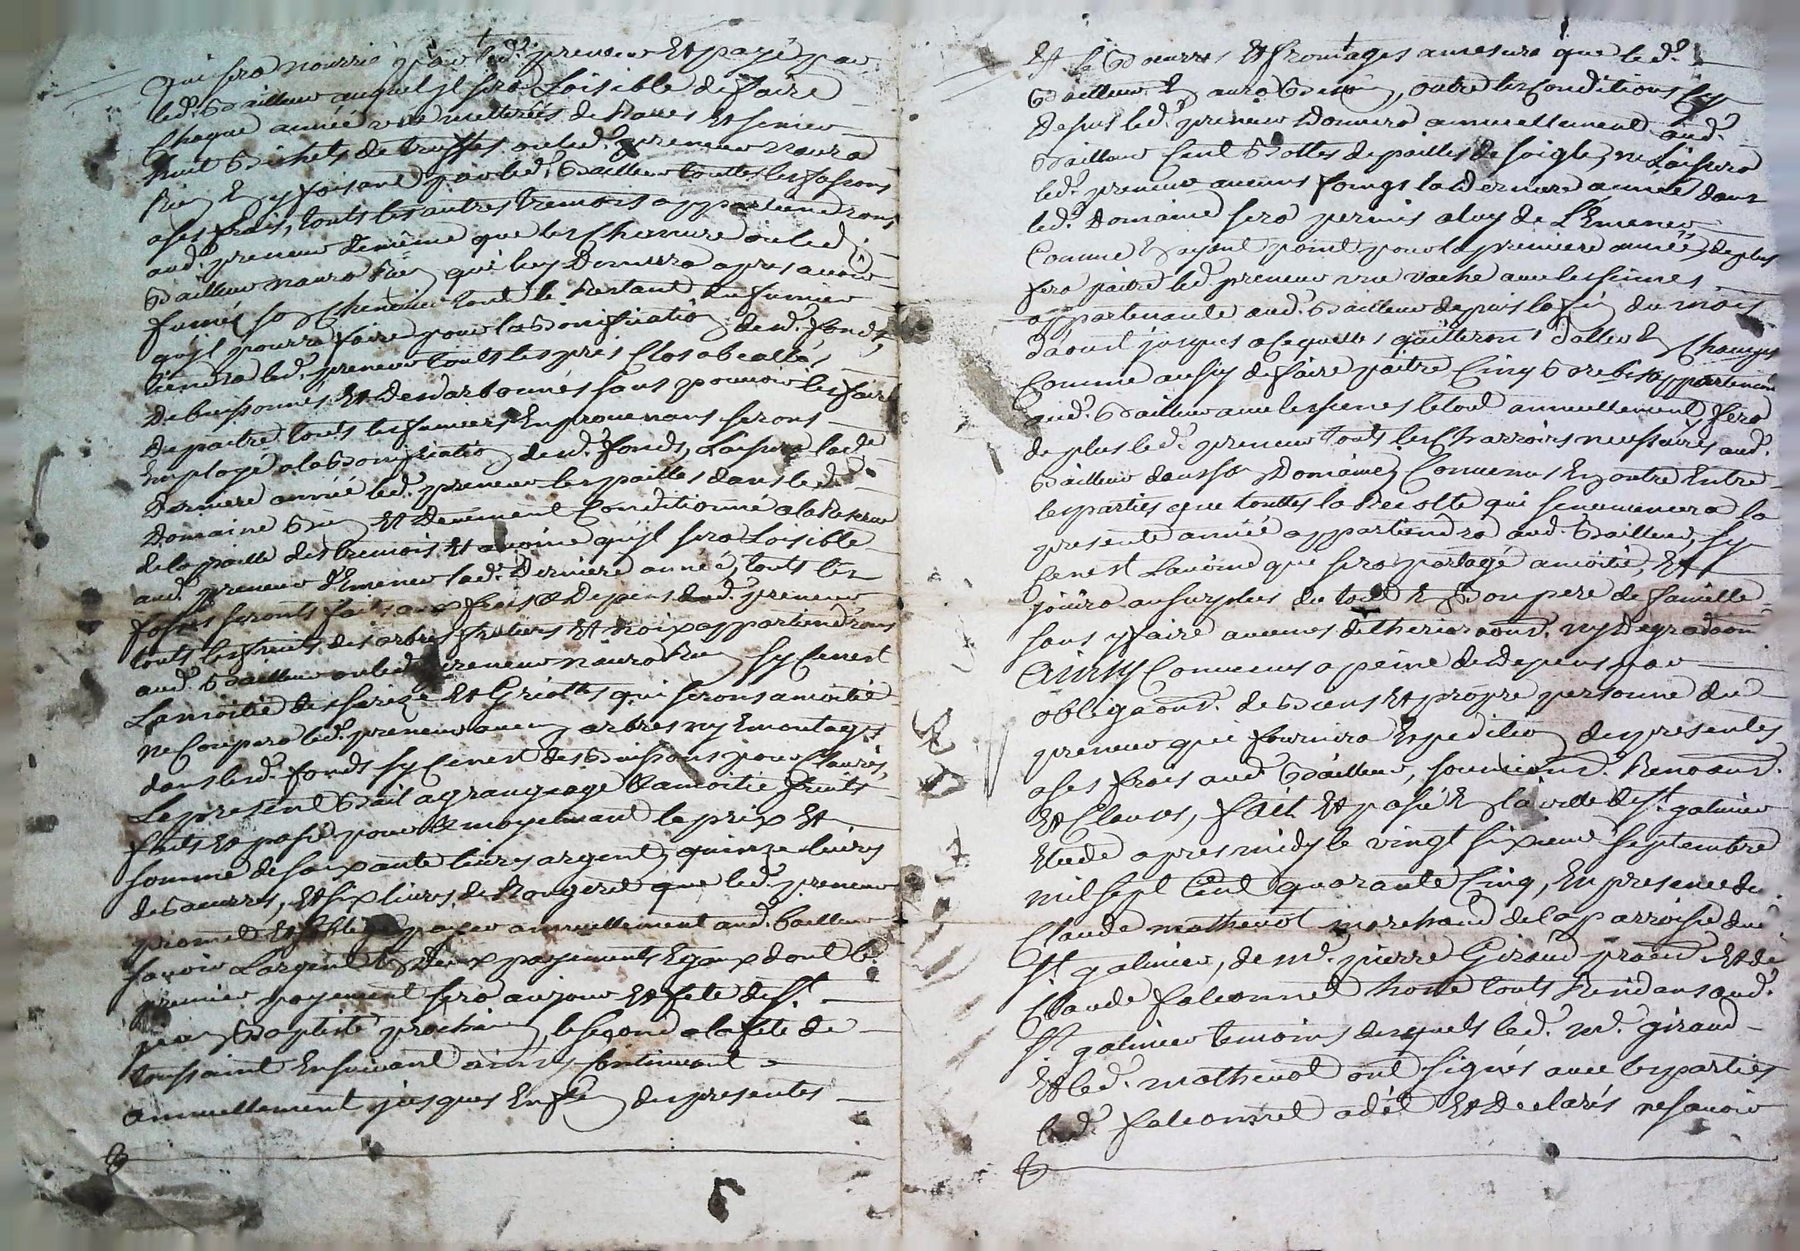 qui sera nourrie par led. preneur Et payé par
led. Bailleur auquel Jl sera Loisible de faire
Chaque année metterés de Raves Et semer
huit Bichets de truffes ou led. preneur n'aura
Rien En y faisant par led. Bailleur touttes les fassons
a ses frais, touts les autres tremois appartiendrons
aud. preneur de même que les Chenevre ou led.
Bailleur n'aura Rien qui luy Donnera apres avoir
fumé son Chenevier tout le Restant du fumier
qu'jl pourra faire pour la Bonification desd. fonds,
tiendra led. preneur touts les prés Clos
Debuissonnés Et Desdarbonnés sans pouvoir les faire
Depaitre touts les fumiers En provenans serons
Employé a la Bonification desd. fonds, Laissera lad.
Derniere année led. preneur les pailles dans led.
Domaine Bien Et Deuement Conditionné a la Reserve
de la paille des tremois Et avoine qu'jl sera Loisible
aud. preneur d'Emener lad. Derniere année, touts les
fossés seronts faits aux frais & Depens dud. preneur
touts les fruits des arbres fruitiers Et noix appartiendrons
aud. Bailleur ou led. preneur n'aura Rien sy Ce n'est
La moitié des serize Et Griottes qui serons a moitié
ne Coupera led. preneur aucun arbres ny Emontages
dans lesd. fonds sy Ce n'est des Buissons pour Claures,
Le present Bail a grangeage & a moitie fruits
faits Et passé pour & moyenant le prix Et
somme de soixante livres argent, quinze livres
de Beurres, Et six livres de Rougeret que led. preneur
promet Et s'oblige payer annuellement aud. Bailleur
savoir L'argent En Deux payements Egaux dont le
premier payement sera au jour Et fete de St.
jean Baptiste prochain, le segond a la fete de
toussaint Ensuivant ainsy Continuant
annuellement jusques En fin des presentes
Et le Beurres Et fromages a mesure que led.
Bailleur En aura Besoin, outre les Conditions Cy
Dessus led. preneur Donnera annuellement aud.
Bailleur Cent Bottes de pailles de soigle, ne Laissera
led. preneur aucuns foings la Derniere année dans
led. Domaine sera permis a luy de L'Emener
Comme n'ayant point pour la premiere année, de plus
fera paitre led. preneur une vache avec les siennes
appartenante aud. Bailleur depuis la fin du mois
d'aoust jusques a Ce quelles quitterons d'aller En Champs
Comme aussy de faire paitre Cinq Brebis appartenant
aud. Bailleur avec les sienes le tout annuellement, fera
de plus led. preneur touts les Charrois necessaires aud.
Bailleur dans son Domaine, Convenus En outre Entre
les parties que touttes la Recolte qui se
presente année appartiendra aud. Bailleur, sy
Ce n'est L'avoine que sera partagé a moitié, Et
jouira au surplus du tout En Bon pere de famille
sans y faire aucunes detherioraons. ny Degradaon
Ainsy Convenus a peine de depens par
obligaons. de Biens Et propre personne du
preneur qui fournira Expedition des presentes
a ses frais aud. Bailleur, soumions. Renoans.
Et Clauses, fait Et passé En la ville de St. galmier
Etude apres midy le vingt sixieme septembre
mil sept Cent quarante Cinq, En presence de
Claude mathevot marchand de la parroisse dud.
St. galmier, de Mr. pierre Giraud et de
Claude falconnet touts Residans aud.
St. galmier temoins desquels led. Mr. giraud
Et led. mathevot ont signés avec les parties
led. falconnet a dél Et Declarés ne savoir